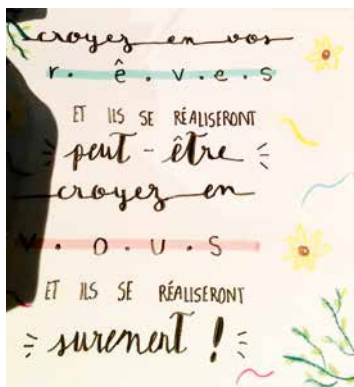 croyez en vos
r.ê.v.e.s
ET ILS SE RÉALISERONT
peut-être
croyez en
v.o.u.s
ET ILS SE RÉALISERONT
surement !